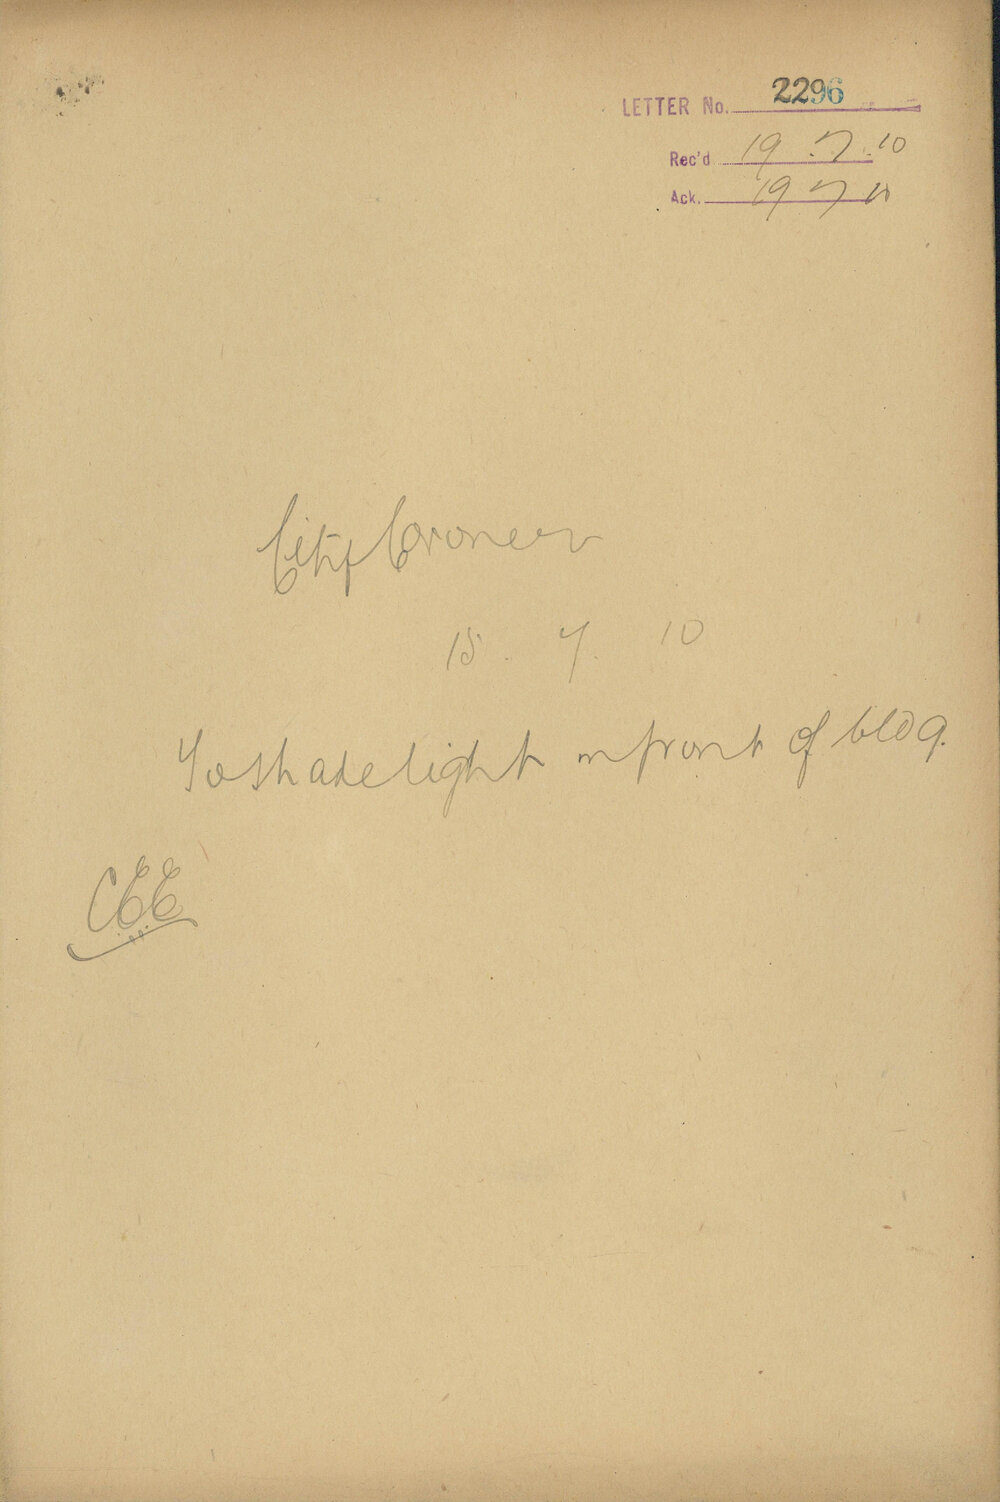 LETTER No. 2296
Rec'd 19.7.10
Ack. 19 7 10
City Coroner
15. 7. 10
To shade light in front of bldg.
CEE